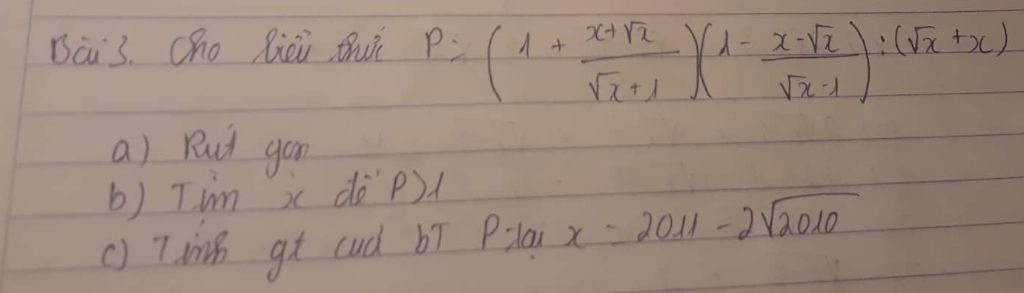 Bài 3. Cho biểu thức P = (1 + \frac{x+\sqrt{x}}{\sqrt{x}+1})(1 - \frac{x-\sqrt{x}}{\sqrt{x}-1}) : (\sqrt{x} + x)
a) Rút gọn
b) Tìm x để P>1
c) Tính gt của bT P tại x = 2011 - 2\sqrt{2010}